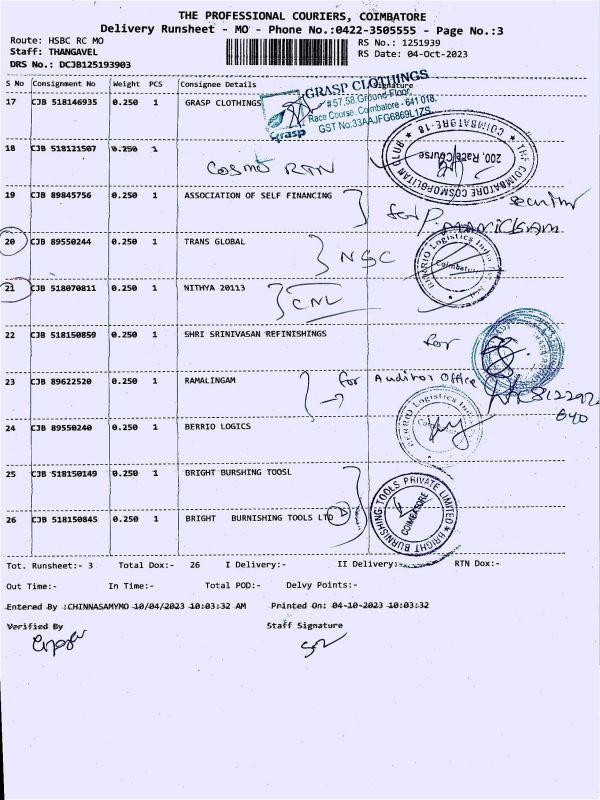 THE PROFESSIONAL COURIERS, COIMBATORE
Delivery Runsheet - MO - Phone No.:0422-3505555 - Page No.:3
Route: HSBC RC MO
RS No.: 1251939
Staff: THANGAVEL
RS Date: 04-Oct-2023
DRS No.: DCJB125193903
S No Consignment No Weight PCS Consignee Details Signature
17 CJB 518146935 0.250 1 GRASP CLOTHINGS
GRASP CLOTHINGS
#57,58,Ground Floor,
Race Course, Coimbatore - 641 018.
GST No:33AAJFG6869L1ZS
Grasp
18 CJB 518121507 0.250 1
COSMO RTN
THE COIMBATORE COSMOPOLITAN CLUB * COIMBATORE-18 *
200, Race Course
19 CJB 89845756 0.250 1 ASSOCIATION OF SELF FINANCING
for
20 CJB 89550244 0.250 1 TRANS GLOBAL
NSC
BERRIO Logistics India
Coimbatore
21 CJB 518070811 0.250 1 NITHYA 20113
CNL
22 CJB 518150859 0.250 1 SHRI SRINIVASAN REFINISHINGS
for
23 CJB 89622520 0.250 1 RAMALINGAM
for Auditor Office
24 CJB 89550240 0.250 1 BERRIO LOGICS
BERRIO Logistics India
25 CJB 518150149 0.250 1 BRIGHT BURSHING TOOSL
26 CJB 518150845 0.250 1 BRIGHT BURNISHING TOOLS LTD
BRIGHT BURNISHING TOOLS PRIVATE LIMITED
COIMBATORE
Tot. Runsheet:- 3 Total Dox:- 26 I Delivery:- II Delivery:- RTN Dox:-
Out Time:- In Time:- Total POD:- Delvy Points:-
Entered By :CHINNASAMYMO 10/04/2023 10:03:32 AM Printed On: 04-10-2023 10:03:32
Verified By Staff Signature